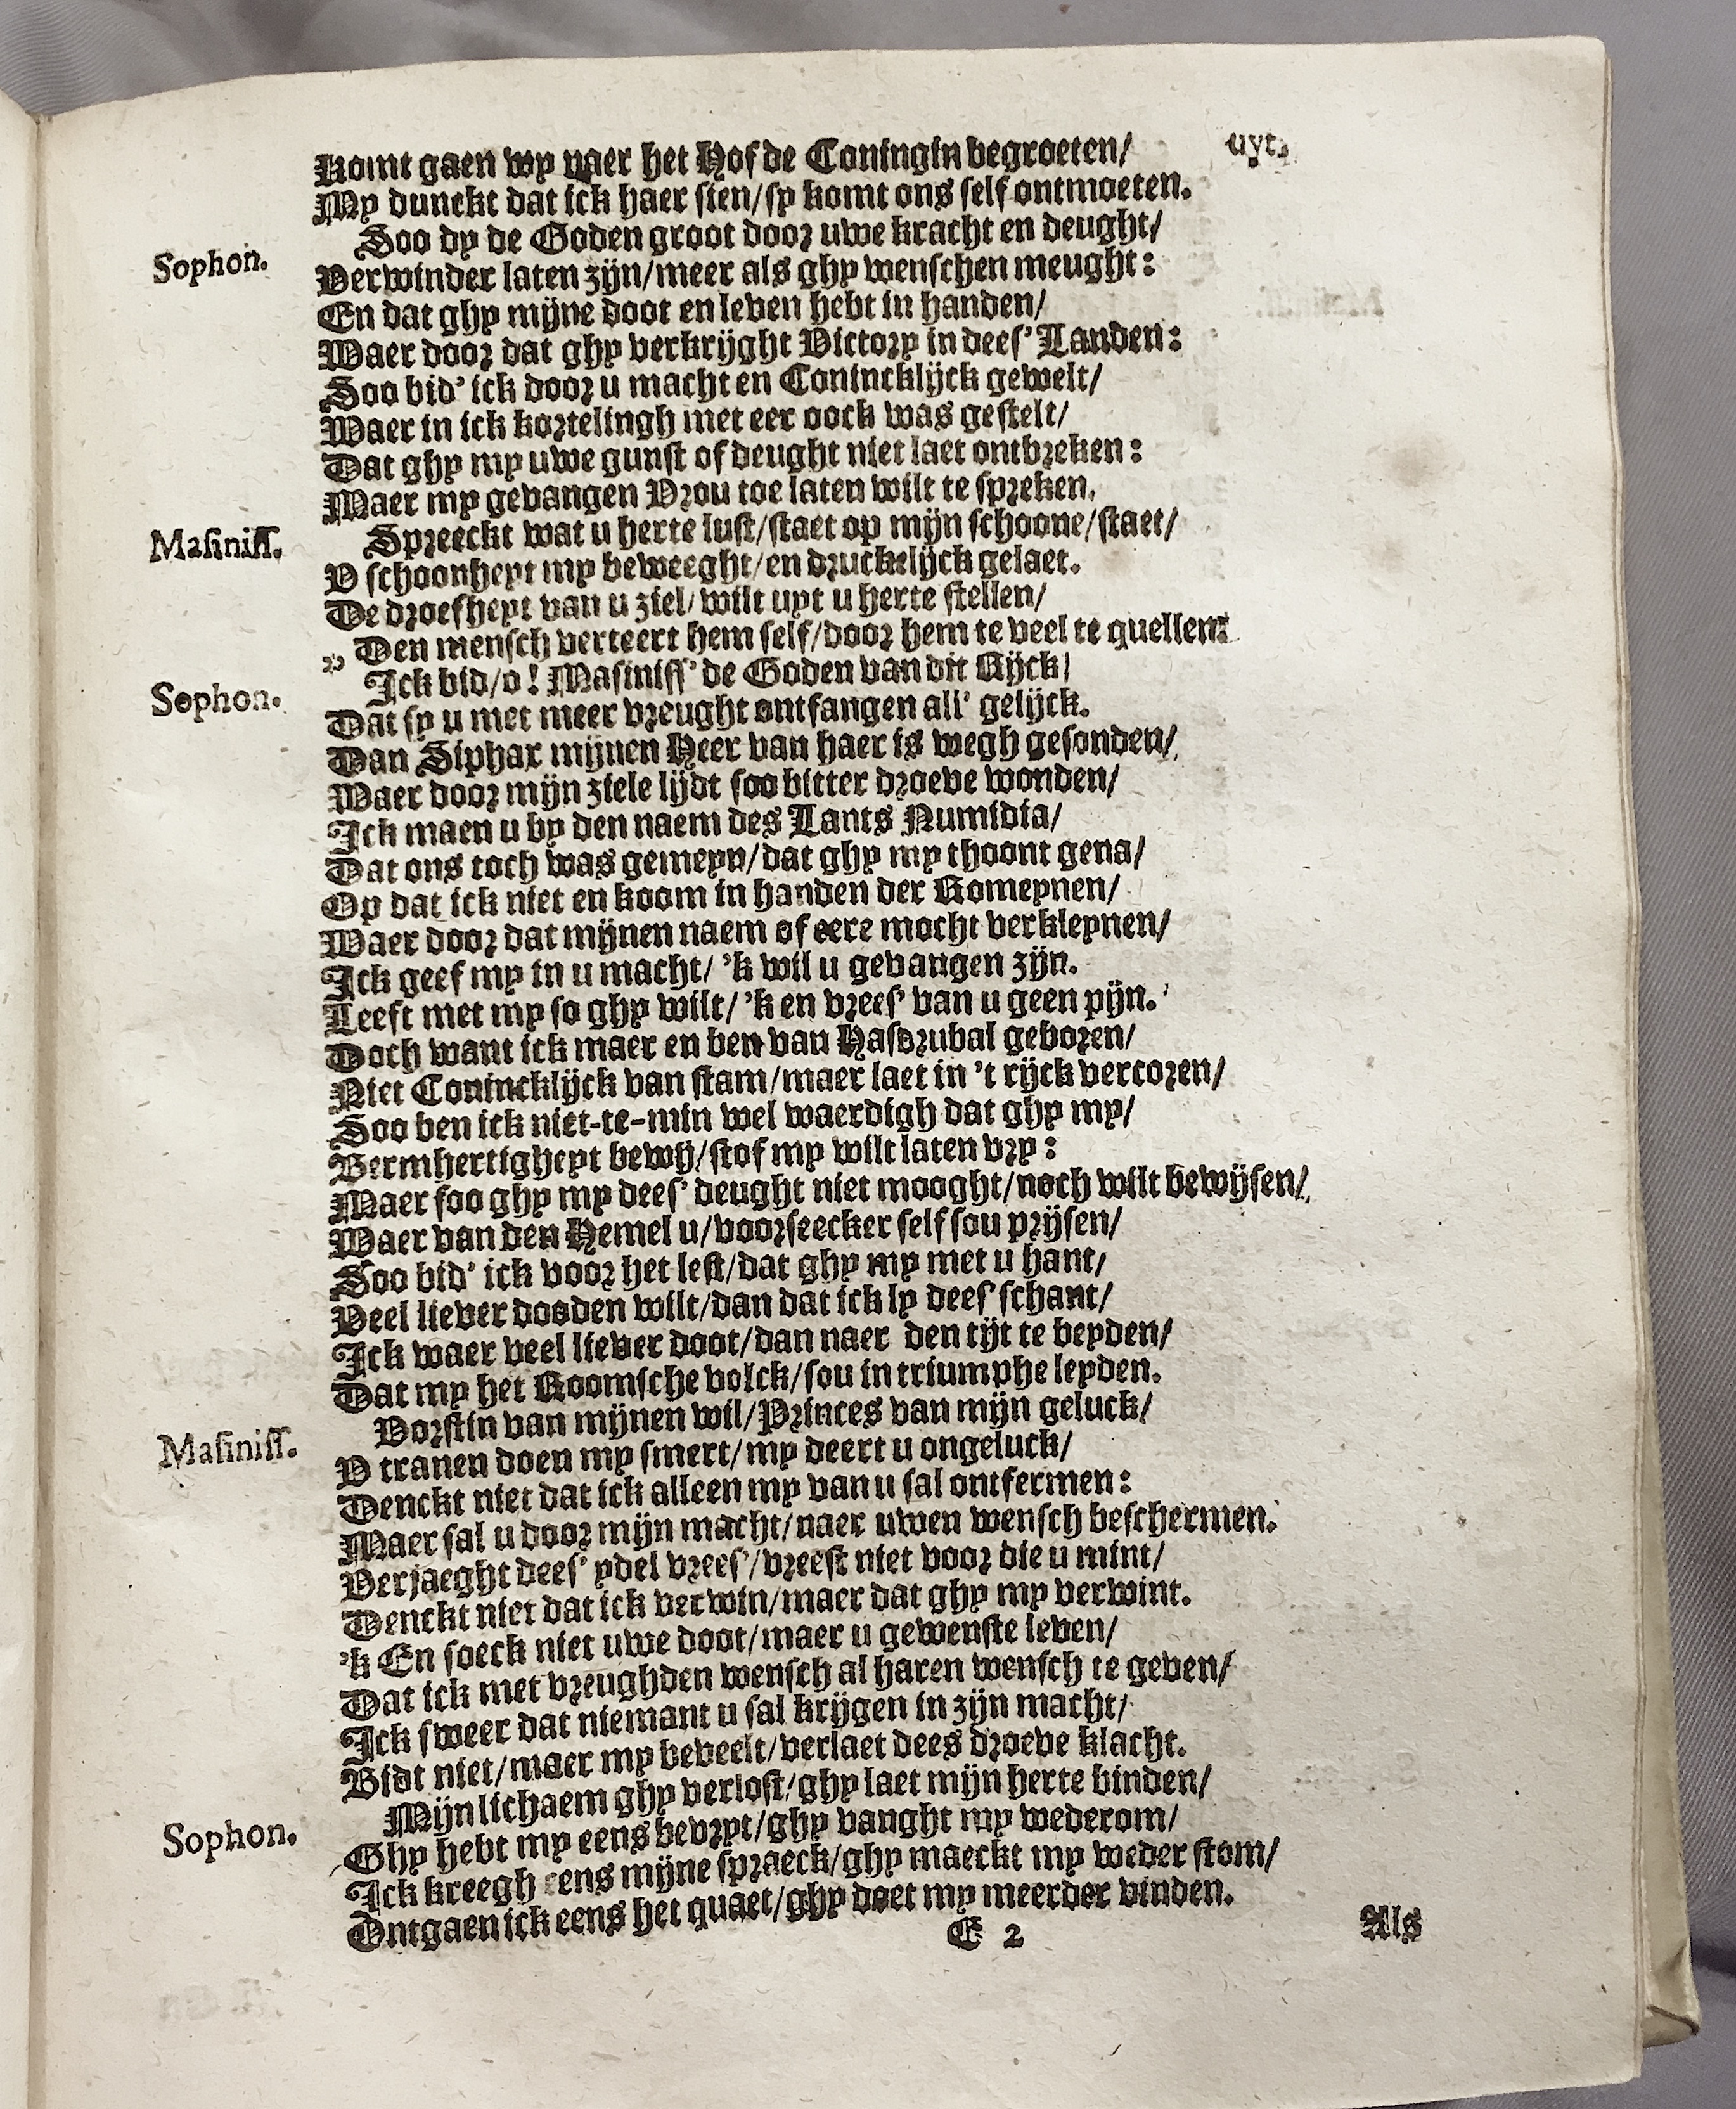 Komt gaen wy naer het Hof de Coningin begroeten/ uyt.
My dunckt dat ick haer sien/sy komt ons self ontmoeten.
Sophon. Soo dy de Goden groot door uwe kracht en deught/
Verwinder laten zijn/meer als ghy wenschen meught:
En dat ghy mijne doot en leven hebt in handen/
Waer door dat ghy verkrijght Victory in dees' Landen:
Soo bid' ick door u macht en Conincklijck gewelt/
Waer in ick kortelingh met eer oock was gestelt/
Dat ghy my uwe gunst of deught niet laet ontbreken:
Maer my gevangen Vrou toe laten wilt te spreken.
Masiniss. Spreeckt wat u herte lust/staet op mijn schoone/staet/
V schoonheyt my beweeght/en druckelijck gelaet.
De droefheyt van u ziel/wilt uyt u herte stellen/
„ Den mensch verteert hem self/door hem te veel te quellen:
Sophon. Ick bid/o! Masiniss' de Goden van dit Rijck/
Dat sy u met meer vreught ontfangen all' gelijck.
Dan Siphax mijnen Heer van haer is wegh gesonden/
Waer door mijn ziele lijdt soo bitter droeve wonden/
Ick maen u by den naem des Lants Numidia/
Dat ons toch was gemeyn/dat ghy my thoont gena/
Op dat ick niet en koom in handen der Romeynen/
Waer door dat mijnen naem of eere mocht verkleynen/
Ick geef my in u macht/ 'k wil u gevangen zijn.
Leeft met my so ghy wilt/ 'k en vrees' van u geen pijn.
Doch want ick maer en ben van Hasdrubal geboren/
Niet Conincklijck van stam/maer laet in 't rijck vercoren/
Soo ben ick niet-te-min wel waerdigh dat ghy my/
Bermhertigheyt bewij/stof my wilt laten vry:
Maer soo ghy my dees' deught niet mooght/noch wilt bewijsen/
Waer van den Hemel u/voorseecker self sou prijsen/
Soo bid' ick voor het lest/dat ghy my met u hant/
Veel liever dooden wilt/dan dat ick ly dees' schant/
Ick waer veel liever doot/dan naer den tijt te beyden/
Dat my het Roomsche volck/sou in triumphe leyden.
Masiniss. Vorstin van mijnen wil/Princes van mijn geluck/
V tranen doen my smert/my deert u ongeluck/
Denckt niet dat ick alleen my van u sal ontfermen:
Maer sal u door mijn macht/naer uwen wensch beschermen.
Verjaeght dees' ydel vrees'/vreest niet voor die u mint/
Denckt niet dat ick verwin/maer dat ghy my verwint.
'k En soeck niet uwe doot/maer u gewenste leven/
Dat ick met vreughden wensch al haren wensch te geven/
Ick sweer dat niemant u sal krijgen in zijn macht/
Bidt niet/maer my beveelt/verlaet dees droeve klacht.
Sophon. Mijn lichaem ghy verlost/ghy laet mijn herte binden/
Ghy hebt my eens bevryt/ghy vanght my wederom/
Ick kreegh eens mijne spraeck/ghy maeckt my weder stom/
Ontgaen ick eens het quaet/ghy doet my meerder vinden.
E 2 Als